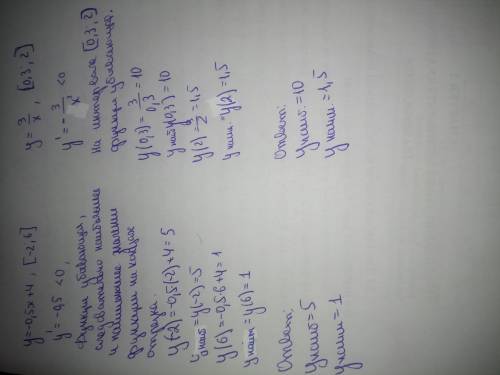 y=-0,5x+4, [-2,6]
y'=-0,5 <0,
функция убывающая,
следовательно наибольшее
и наименьшее значение
функции на концах
отрезка.
y(-2)=-0,5(-2)+4=5
y наиб=y(-2)=5
y(6)=-0,5·6+4=1
y наим=y(6)=1
Ответ:
y наиб=5
y наим=1
y=3/x, [0,3; 2]
y'=-3/x² <0
на интервале [0,3; 2]
функция убывающая.
y(0,3)=3/0,3=10
y наиб y(0,3)=10
y(2)=3/2=1,5
y наим.=y(2)=1,5
Ответ:
y наиб.=10
y наим=1,5